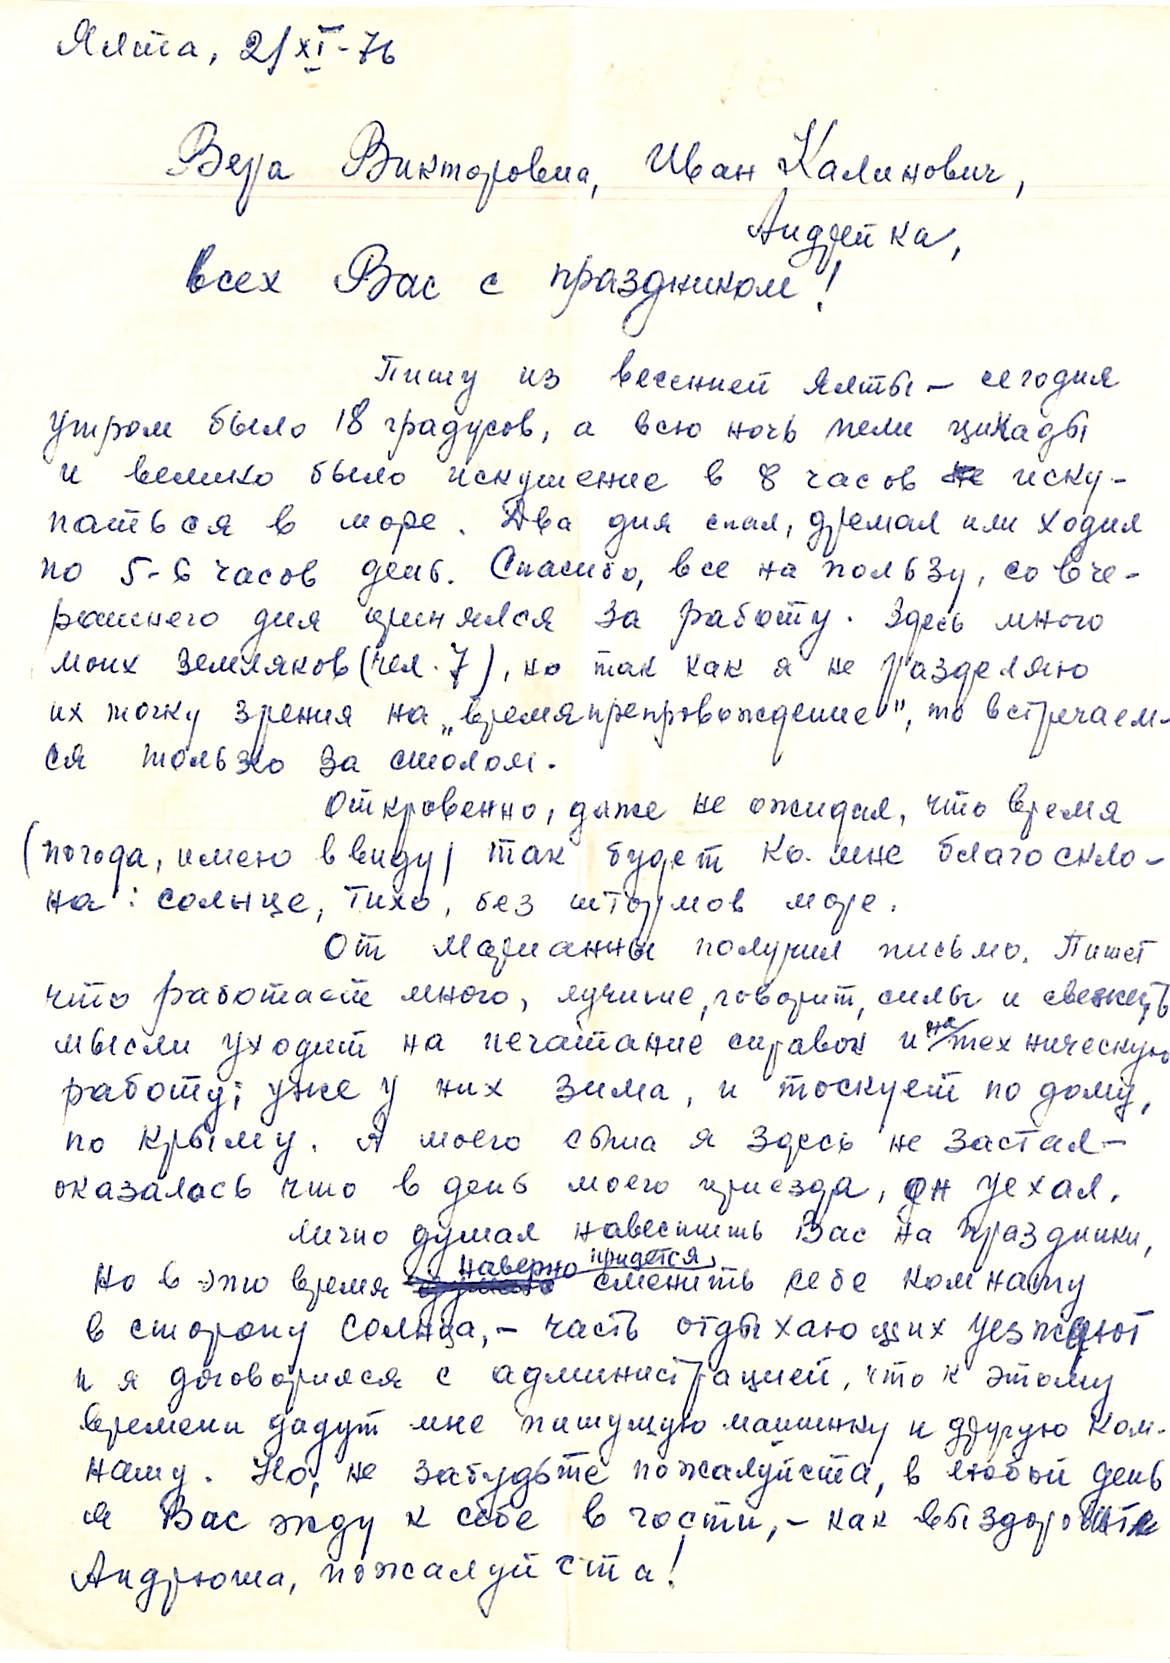 Ялта, 2/XI-76
Вера Викторовна, Иван Калинович,
Андрейка,
всех Вас с праздником!
Пишу из весенней Ялты – сегодня
утром было 18 градусов, а всю ночь пели цикады
и велико было искушение в 8 часов не иску-
паться в море. Два дня спал, дремал или ходил
по 5-6 часов день. Спасибо, все на пользу, со вче-
рашнего дня принялся за работу. Здесь много
моих земляков (чел. 7), но так как я не разделяю
их точку зрения на „времяпрепровождение", то встречаем-
ся только за столом.
Откровенно, даже не ожидал, что время
(погода, имею в виду) так будет ко мне благоскло-
на: солнце, тихо, без штормов море.
От Марианны получил письмо. Пишет
что работает много, лучшие, говорит, силы и свежесть
мысли уходит на печатание справок и на техническую
работу; уже у них зима, и тоскует по дому,
по Крыму. А моего сына я здесь не застал –
оказалось что в день моего приезда, он уехал.
Лично думал навестить Вас на праздники,
но в это время наверно придется сменить себе комнату
в сторону солнца, – часть отдыхающих уезжают
и я договорился с администрацией, что к этому
времени дадут мне пишущую машинку и другую ком-
нату. Но, не забудьте пожалуйста, в любой день
я Вас жду к себе в гости, – как выздоровите
Андрюша, пожалуйста!